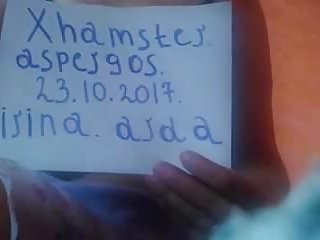 Xhamster.
aspergos.
23.10.2017.
irina. arda